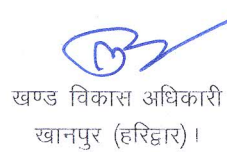 खण्ड विकास अधिकारी
खानपुर (हरिद्वार)।